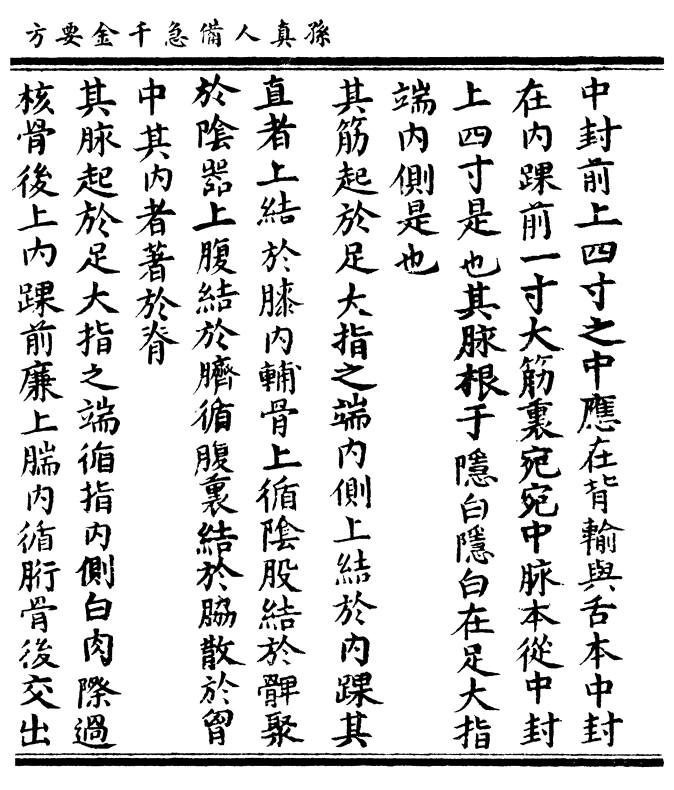 孫真人備急千金要方
中封前上四寸之中應在背輸與舌本中封
在内踝前一寸大筋裏宛宛中脉本從中封
上四寸是也其脉根于隱白隱白在足大指
端内側是也
其筋起於足大指之端内側上結於内踝其
直者上結於膝内輔骨上循陰股結於髀聚
於陰器上腹結於臍循腹裏結於脇散於胷
中其内者著於脊
其脉起於足大指之端循指内側白肉際過
核骨後上内踝前廉上腨内循胻骨後交出